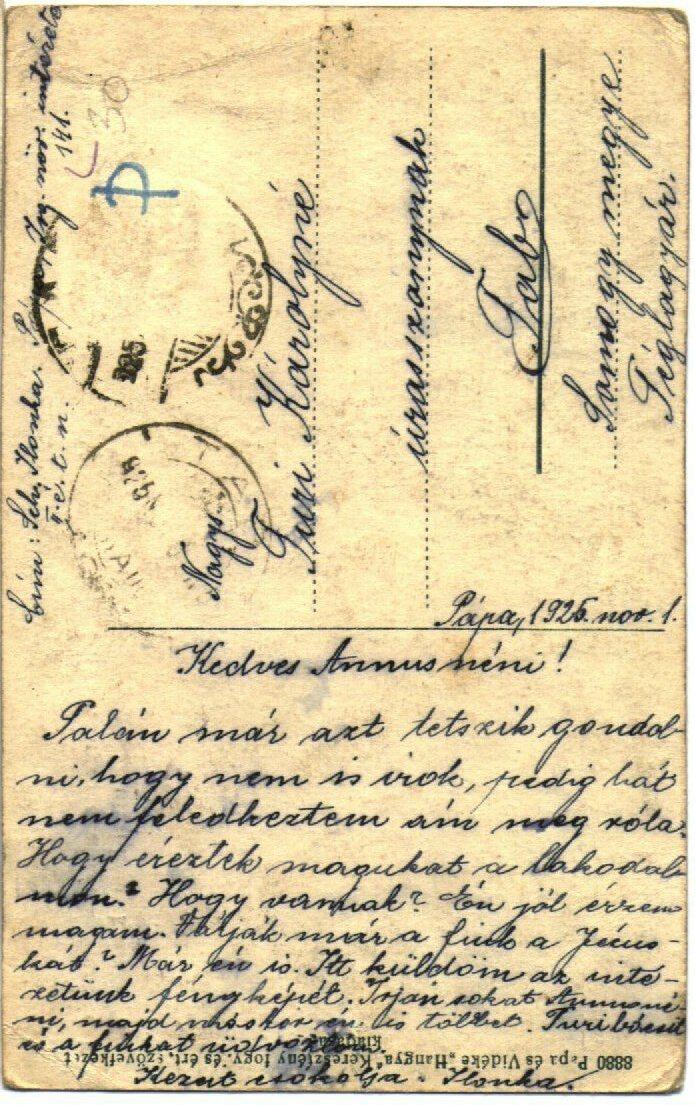 Cím: Ilonka. Pápa, nőv. intézete
I. e. t. n. 141.
30
925
Nagys.
Turi Károlyné
úrasszonynak
Tab
Somogy megye
Téglagyár.
Pápa, 1925. nov. 1.
Kedves Annus néni!
Talán már azt tetszik gondol-
ni, hogy nem is irok, pedig hát
nem feledkeztem ám meg róla.
Hogy érezték magukat a lakodal-
mon? Hogy vannak? Én jól érzem
magam. Várják már a fiuk a Jézus-
kát? Már én is. Itt küldöm az inté-
zetünk fényképét. Irjon sokat Annus né-
ni, majd máskor én is többet. Turi bácsit
és a fiukat üdvözlöm
Kezeit csókolja Ilonka.
8880 Pápa és Vidéke „Hangya" Keresztény fogy. és ért. szövetkezet
kiadása